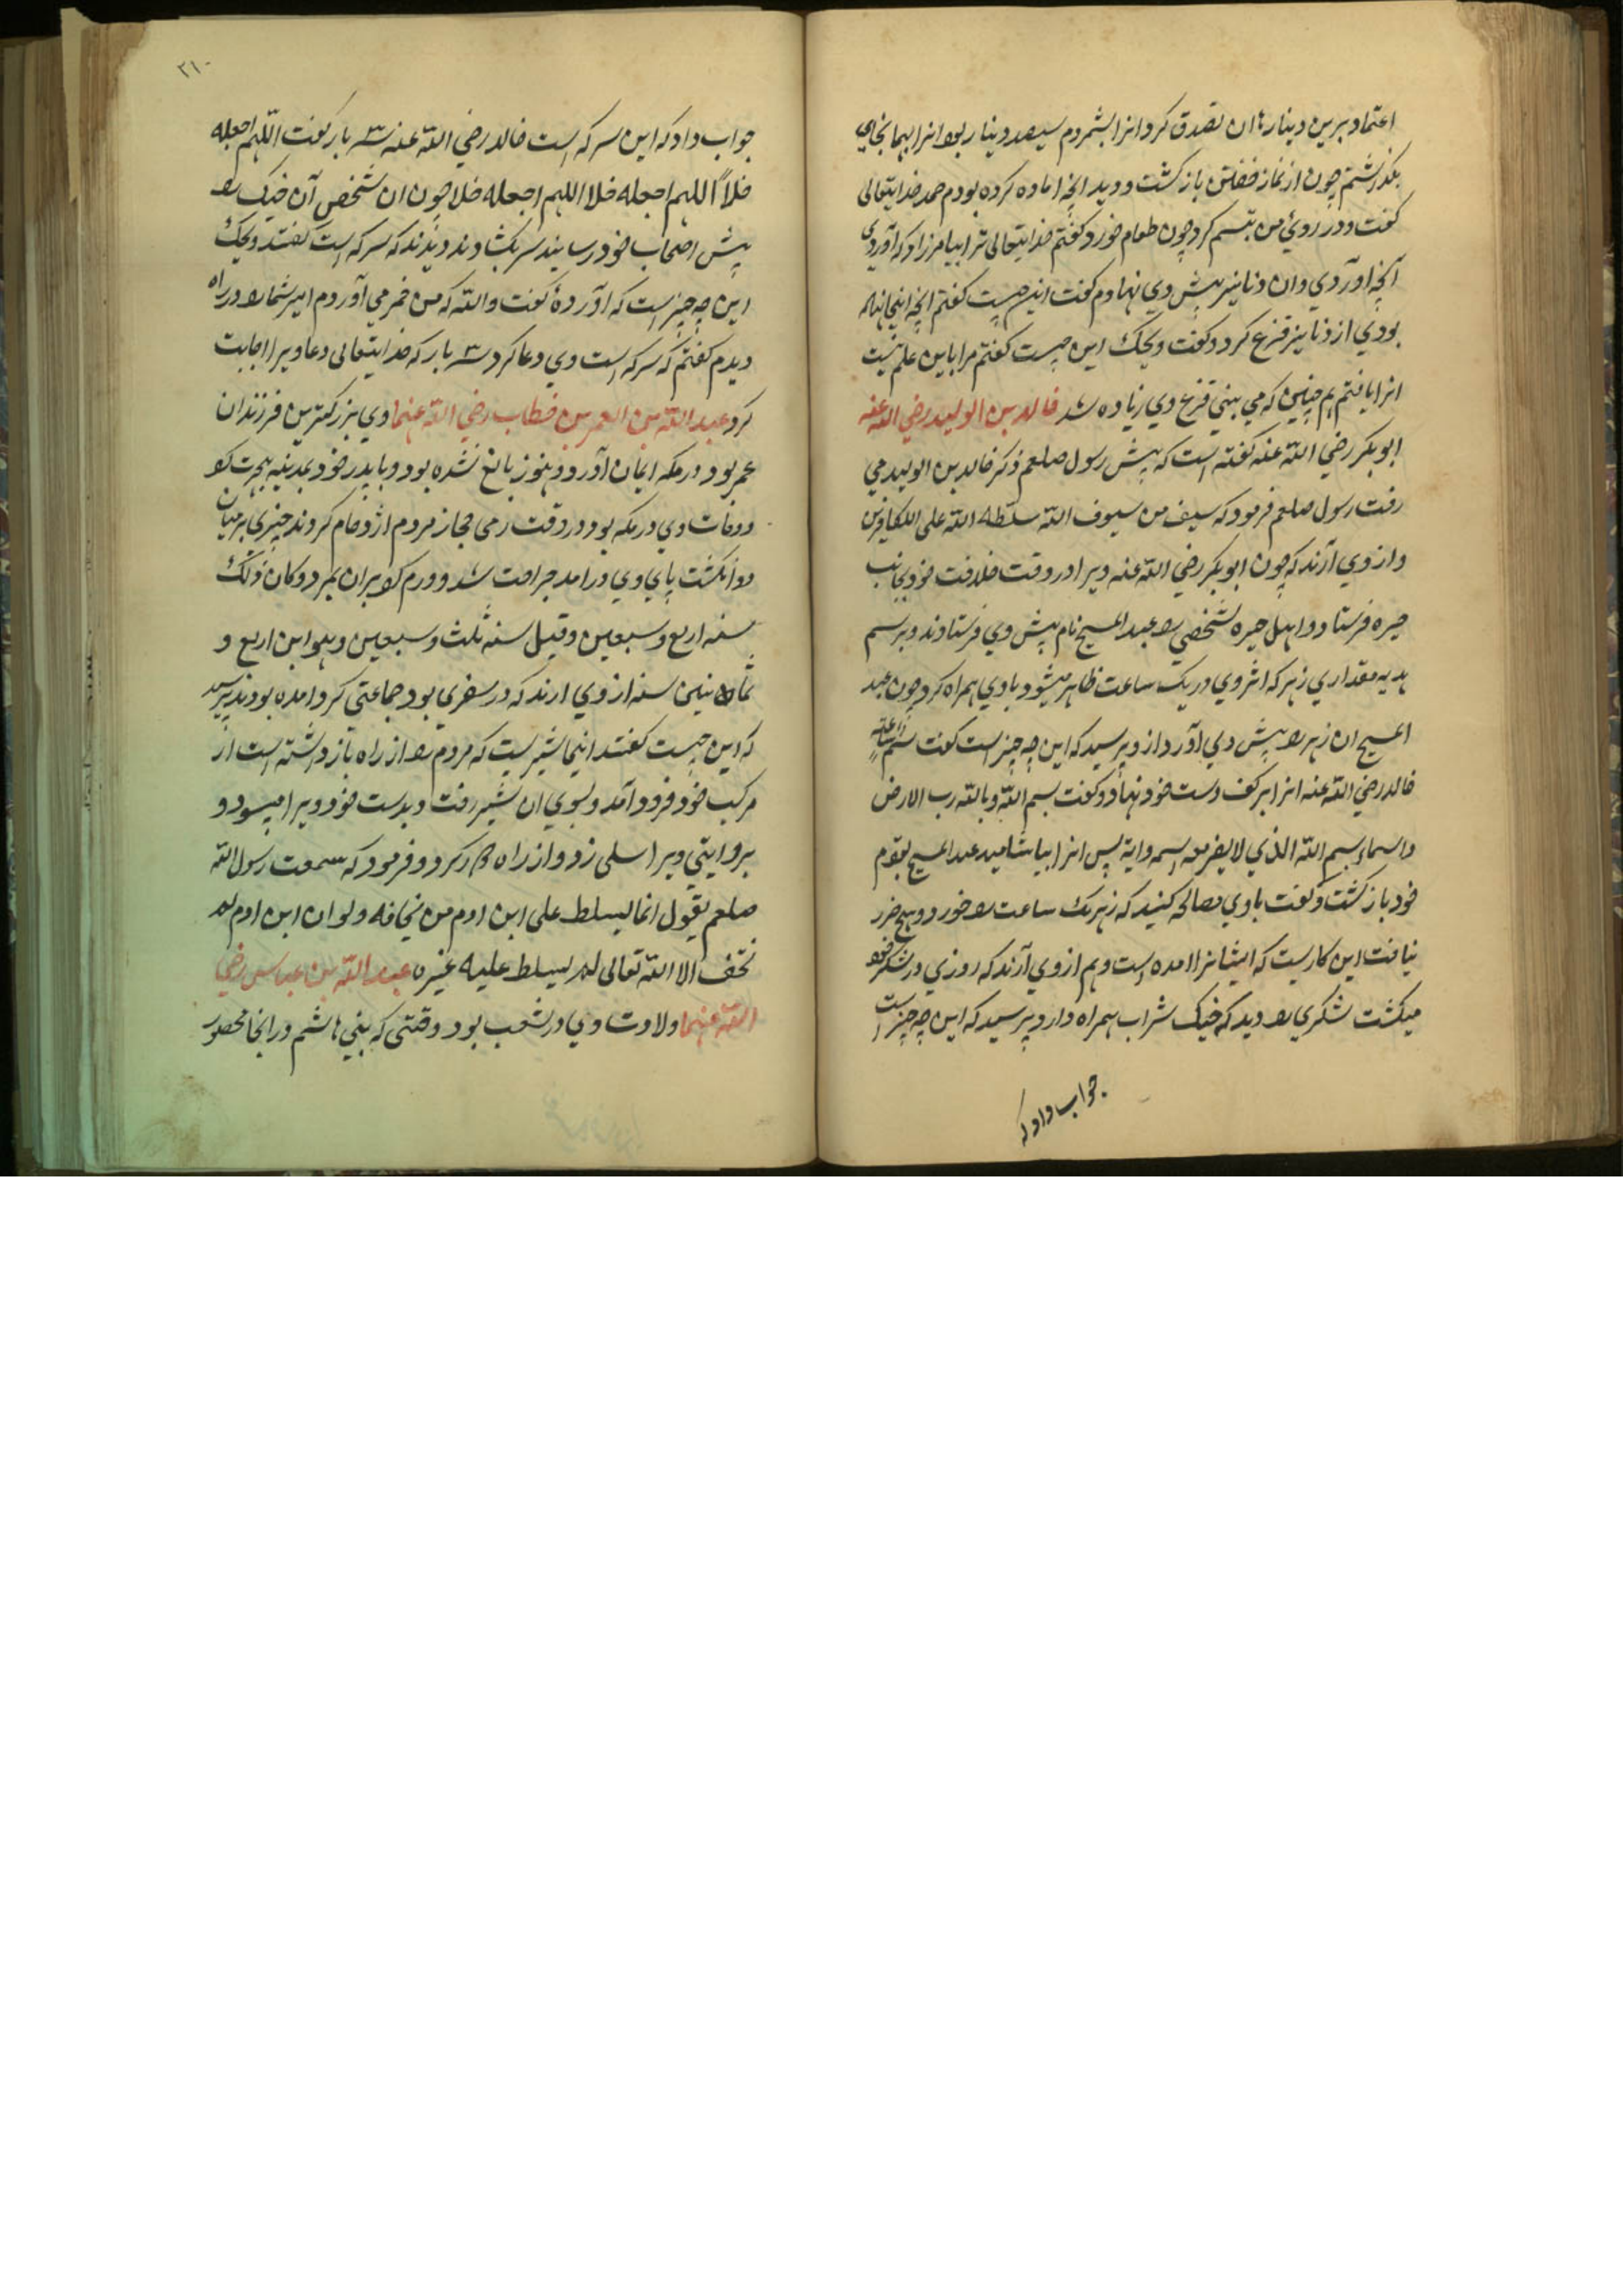 اعتماد برین دینارها ان تصدق کرد انرا بشمردم سیصد دینار بود انرا بهما نجای
بگذاشتم چون از نماز خفتن باز گشت و دید انچه اماده کرده بودم حمد خدایتعالی
گفت و در روی من تبسم کرد چون طعام خورد گفتم خدایتعالی ترا بیامرزاد که آوردی
آنچه اوردی و ان دنانیر پیش وی نهادم گفت این چیست گفتم انچه اینجا نهاده
بودی از دنانیر فزع کرد و گفت ویحک این چیست گفتم مرا باین علم نیست
انرا یافتم هم چنین که می بینی فزع وی زیاده شد خالد بن الولید رضی الله عنه
ابوبکر رضی الله عنه گفته است که پیش رسول صلعم ذکر خالد بن الولید می
رفت رسول صلعم فرمود که سیف من سیوف الله سلّطه الله علی الکافرین
و از وی آرند که چون ابوبکر رضی الله عنه ویرا در وقت خلافت خود بجانب
حیره فرستاد و اهل حیره شخصی را عبد المسیح نام پیش وی فرستادند و برسم
هدیه مقداری زهر که اثر وی در یک ساعت ظاهر میشود با وی همراه کرد چون عبد
المسیح ان زهر را پیش وی آورد از و پرسید که این چه چیز است گفت سم ساعة
خالد رضی الله عنه انرا بر کف دست خود نهاد و گفت بسم الله و بالله رب الارض
والسماء بسم الله الذی لا یضر مع اسمه دابة پس انرا بیاشامید عبد المسیح بقوم
خود باز گشت و گفت با وی مصالحه کنید که زهر یک ساعت را خورد و هیچ ضرر
نیافت این کاریست که ایشانرا امده است و هم از وی آرند که روزی در لشکر خود
میگشت لشکری را دید که خیک شراب همراه دارد پرسید که این چه چیز است
جواب داد که
۲۱۰
جواب داد که این سرکه است خالد رضی الله عنه سه بار گفت اللهم اجعله
خلاً اللهم اجعله خلا اللهم اجعله خلا چون ان شخص آن خیک را
پیش اصحاب خود رسانید سر بگشادند دیدند که سرکه است گفتند ویحک
این چه چیز است که اوردهٔ گفت والله که من خمر می آوردم امیر شما را در راه
دیدم گفتم که سرکه است وی دعا کرد سه بار که خدایتعالی دعا ویرا اجابت
کرد عبد الله بن العمر بن خطاب رضی الله عنهما وی بزرگترین فرزندان
عمر بود در مکه ایمان آورد و هنوز بالغ نشده بود و با پدر خود بمدینه هجرت کرد
و وفات وی در مکه بود در وقت رمی جمار مردم ازدحام کردند چیزی بر میان
دو انگشت پای وی درامد جراحت شد و ورم کرد بران بمرد و کان ذلک
سنه اربع و سبعین و قیل سنه ثلث و سبعین و هو ابن اربع و
ثمانین سنه از وی ارند که در سفری بود جماعتی گرد امده بودند پرسید
که این چیست گفتند اینجا شیریست که مردم را از راه باز داشته است از
مرکب خود فرود آمد و بسوی ان شیر رفت و بدست خود ویرا میسود و
بروایتی ویرا سلی زد و از راه دور کرد و فرمود که سمعت رسول الله
صلعم یقول انما یسلط علی ابن ادم من یخافه ولو ان ابن ادم لم
تخف الا الله تعالی لم یسلط علیه غیره عبد الله بن عباس رضی
الله عنهما ولادت وی در شعب بود وقتی که بنی هاشم در انجا محصور